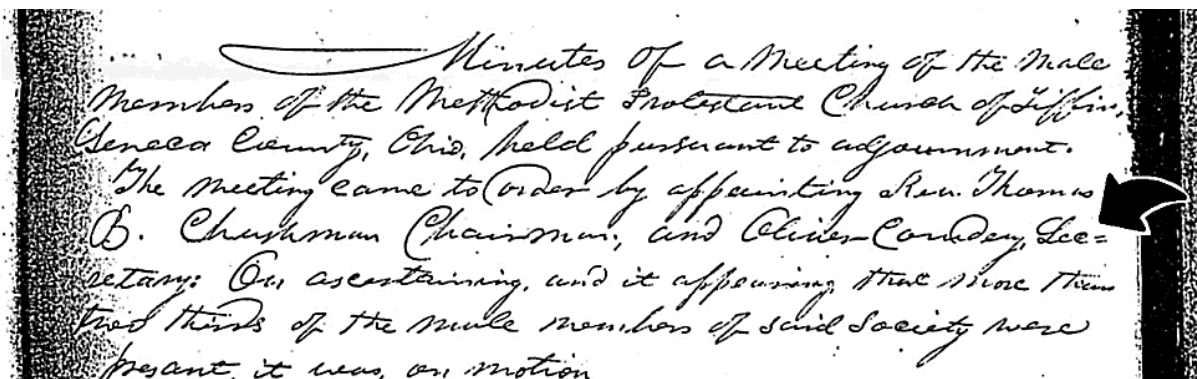 Minutes of a Meeting of the Male
Members of the Methodist Protestant Church of Tiffin,
Seneca County, Ohio, held pursuant to adjournment.
The meeting came to order by appointing Rev. Thomas
B. Chairman, and Oliver Cowdery, Sec=
retary: On ascertaining, and it appearing that more than
two thirds of the male members of said Society were
presant, it was, on motion